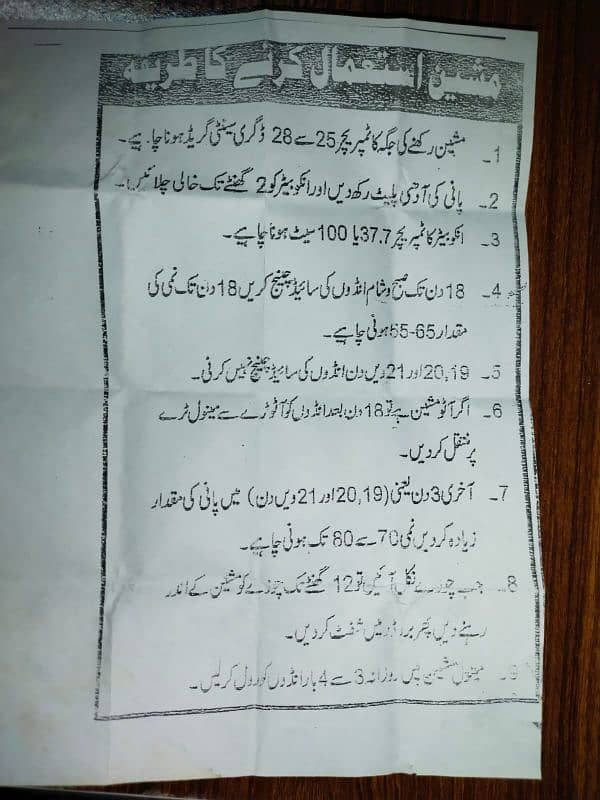 مشین استعمال کرنے کا طریقہ
1۔ مشین رکھنے کی جگہ کا ٹمپریچر 25 سے 28 ڈگری سینٹی گریڈ ہونا چاہیے۔
2۔ پانی کی آدھی پلیٹ رکھ دیں اور انکوبیٹر کو 2 گھنٹے تک خالی چلائیں۔
3۔ انکوبیٹر کا ٹمپریچر 37.7 یا 100 سیٹ ہونا چاہیے۔
4۔ 18 دن تک صبح و شام انڈوں کی سائیڈ چینج کریں 18 دن تک نمی کی
مقدار 55-65 ہونی چاہیے۔
5۔ 20,19 اور 21 ویں دن انڈوں کی سائیڈ چینج نہیں کرنی۔
6۔ اگر آٹو مشین ہے تو 18 دن بعد انڈوں کو آٹو ٹرے سے مینول ٹرے
پر منتقل کر دیں۔
7۔ آخری 3 دن یعنی (20,19 اور 21 ویں دن) میں پانی کی مقدار
زیادہ کر دیں نمی 70 سے 80 تک ہونی چاہیے۔
8۔ جب چوزے نکل آئیں تو 12 گھنٹے تک چوزے کو مشین کے اندر
رہنے دیں پھر بروڈر میں شفٹ کر دیں۔
9۔ مینول مشین میں روزانہ 3 سے 4 بار انڈوں کو رول کر لیں۔